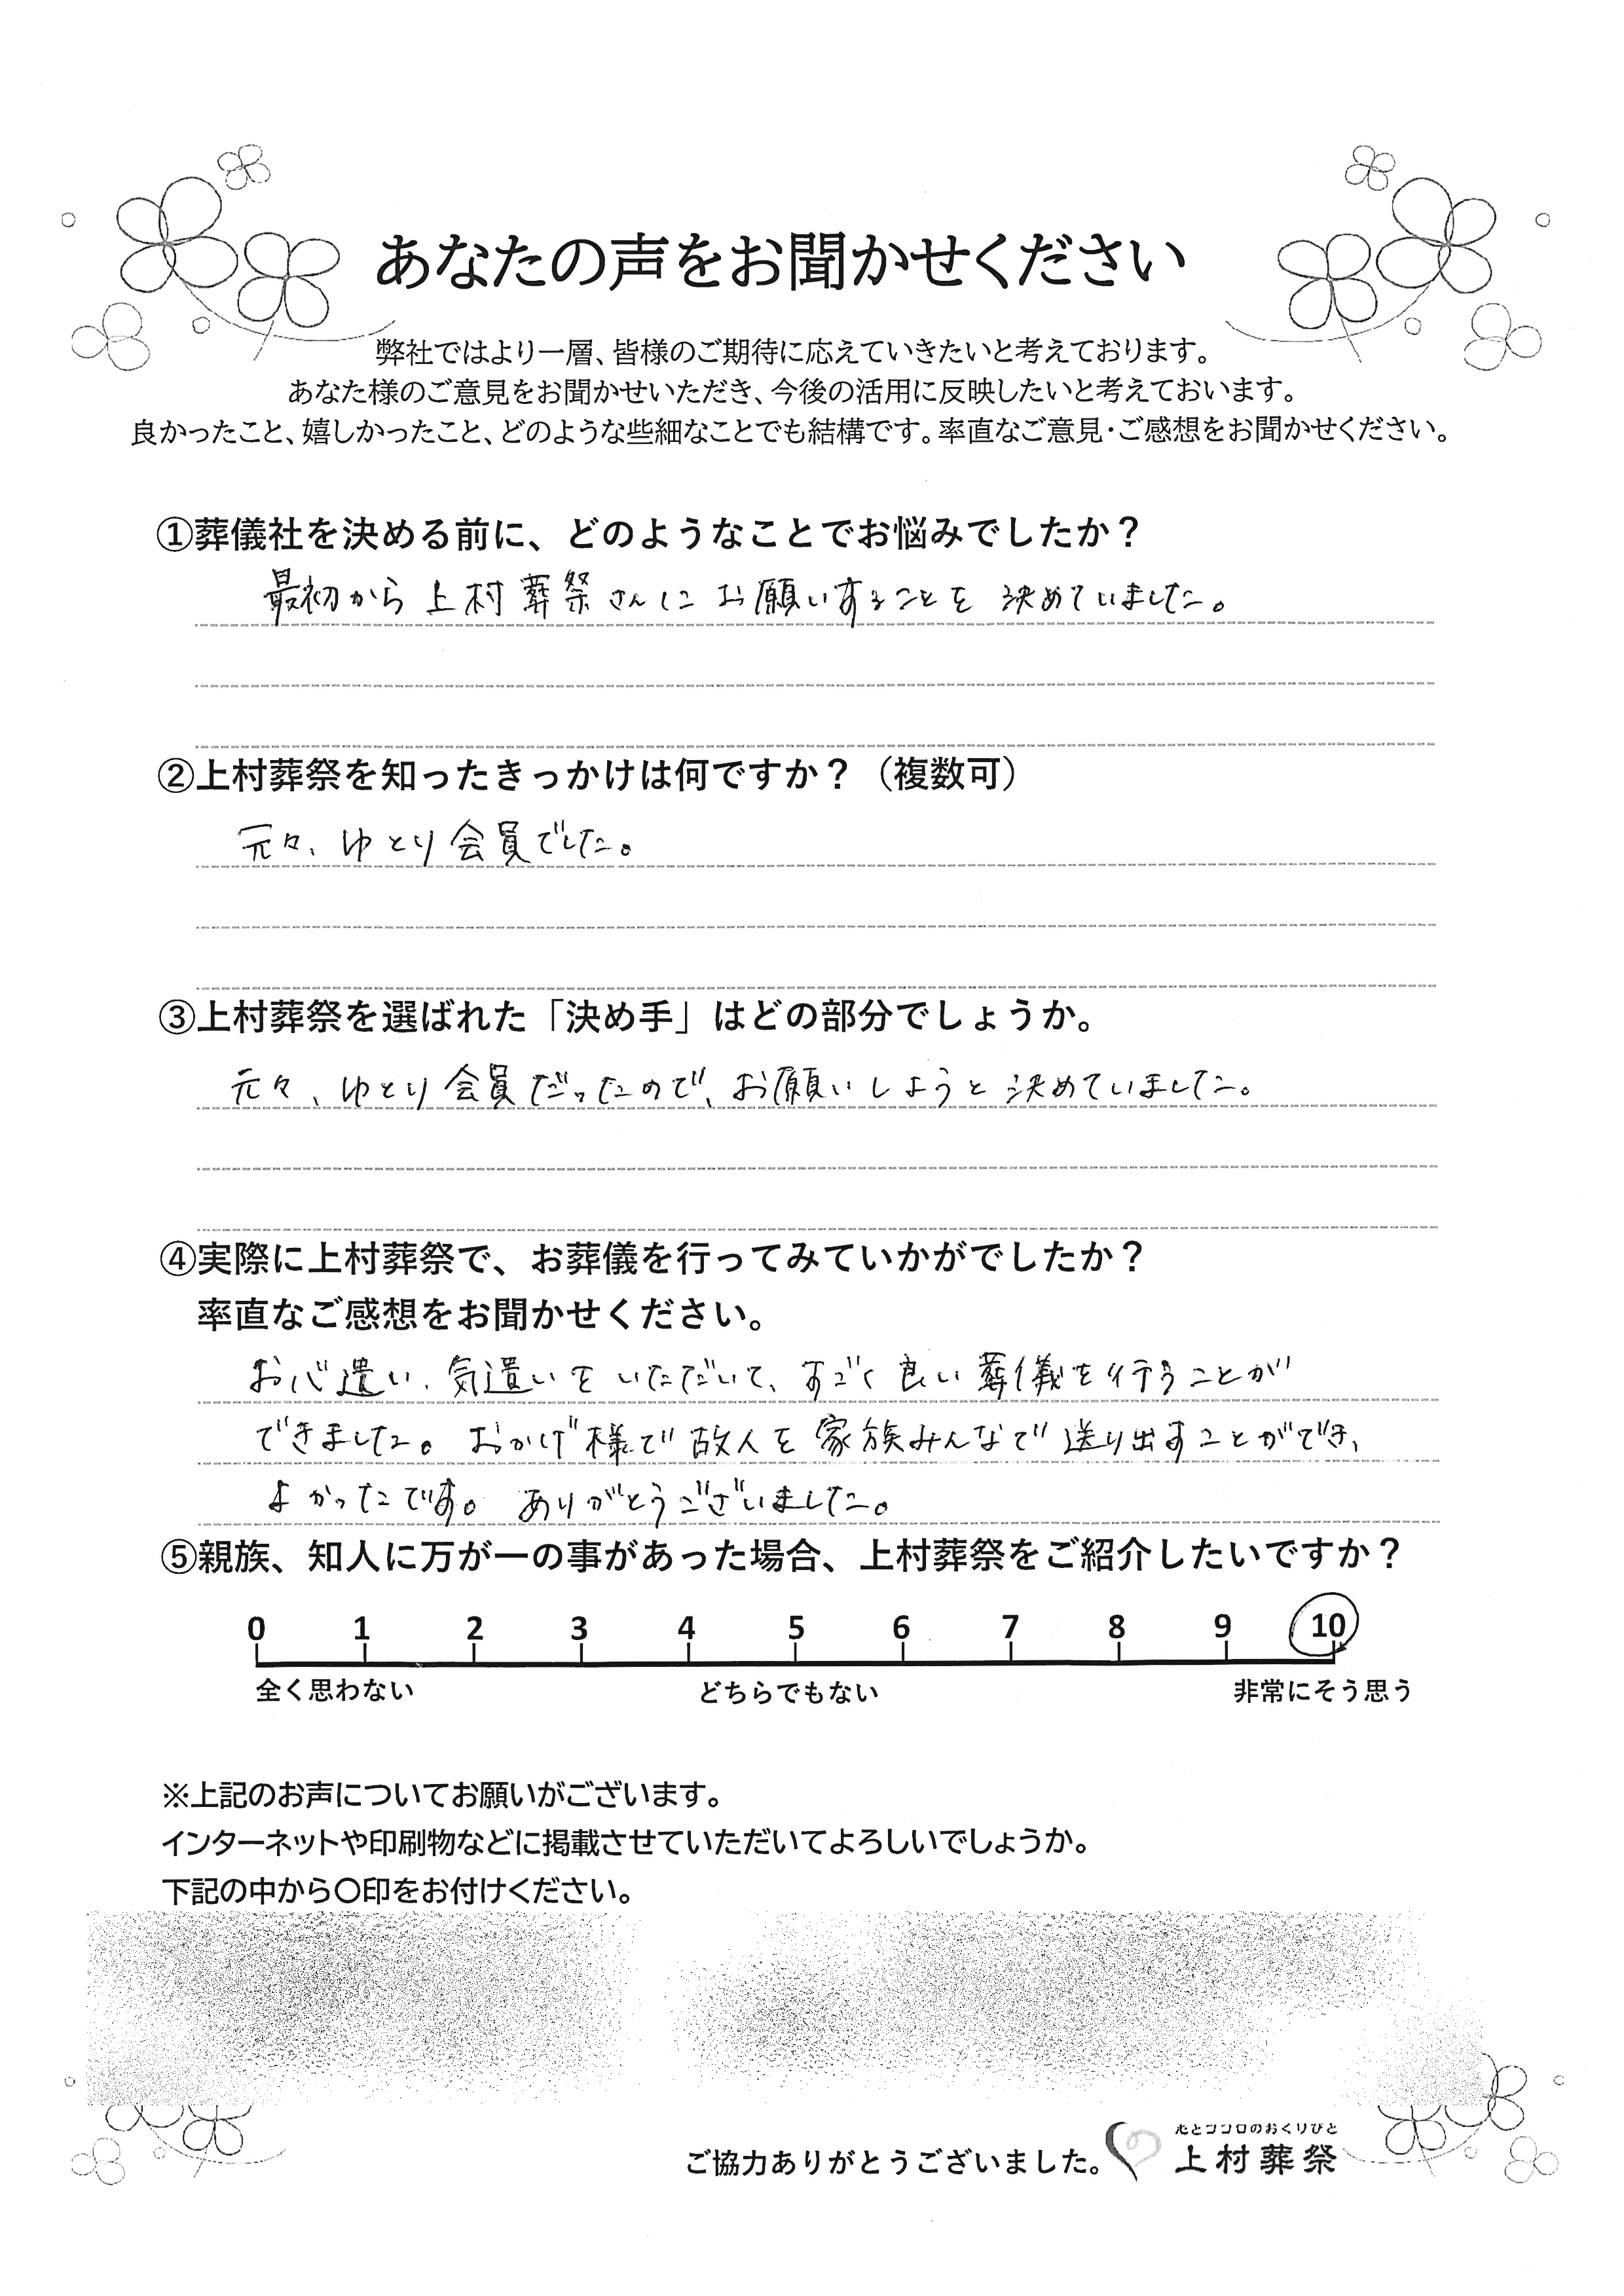 あなたの声をお聞かせください
弊社ではより一層、皆様のご期待に応えていきたいと考えております。
あなた様のご意見をお聞かせいただき、今後の活用に反映したいと考えておいます。
良かったこと、嬉しかったこと、どのような些細なことでも結構です。率直なご意見・ご感想をお聞かせください。
①葬儀社を決める前に、どのようなことでお悩みでしたか？
最初から上村葬祭さんにお願いすることを決めていました。
②上村葬祭を知ったきっかけは何ですか？（複数可）
元々、ゆとり会員でした。
③上村葬祭を選ばれた「決め手」はどの部分でしょうか。
元々、ゆとり会員だったので、お願いしようと決めていました。
④実際に上村葬祭で、お葬儀を行ってみていかがでしたか？
率直なご感想をお聞かせください。
お心遣い、気遣いをいただいて、すごく良い葬儀を行うことが
できました。おかげ様で故人を家族みんなで送り出すことができ、
よかったです。ありがとうございました。
⑤親族、知人に万が一の事があった場合、上村葬祭をご紹介したいですか？
0 1 2 3 4 5 6 7 8 9 10
全く思わない どちらでもない 非常にそう思う
※上記のお声についてお願いがございます。
インターネットや印刷物などに掲載させていただいてよろしいでしょうか。
下記の中から〇印をお付けください。
心とココロのおくりびと
ご協力ありがとうございました。 上村葬祭